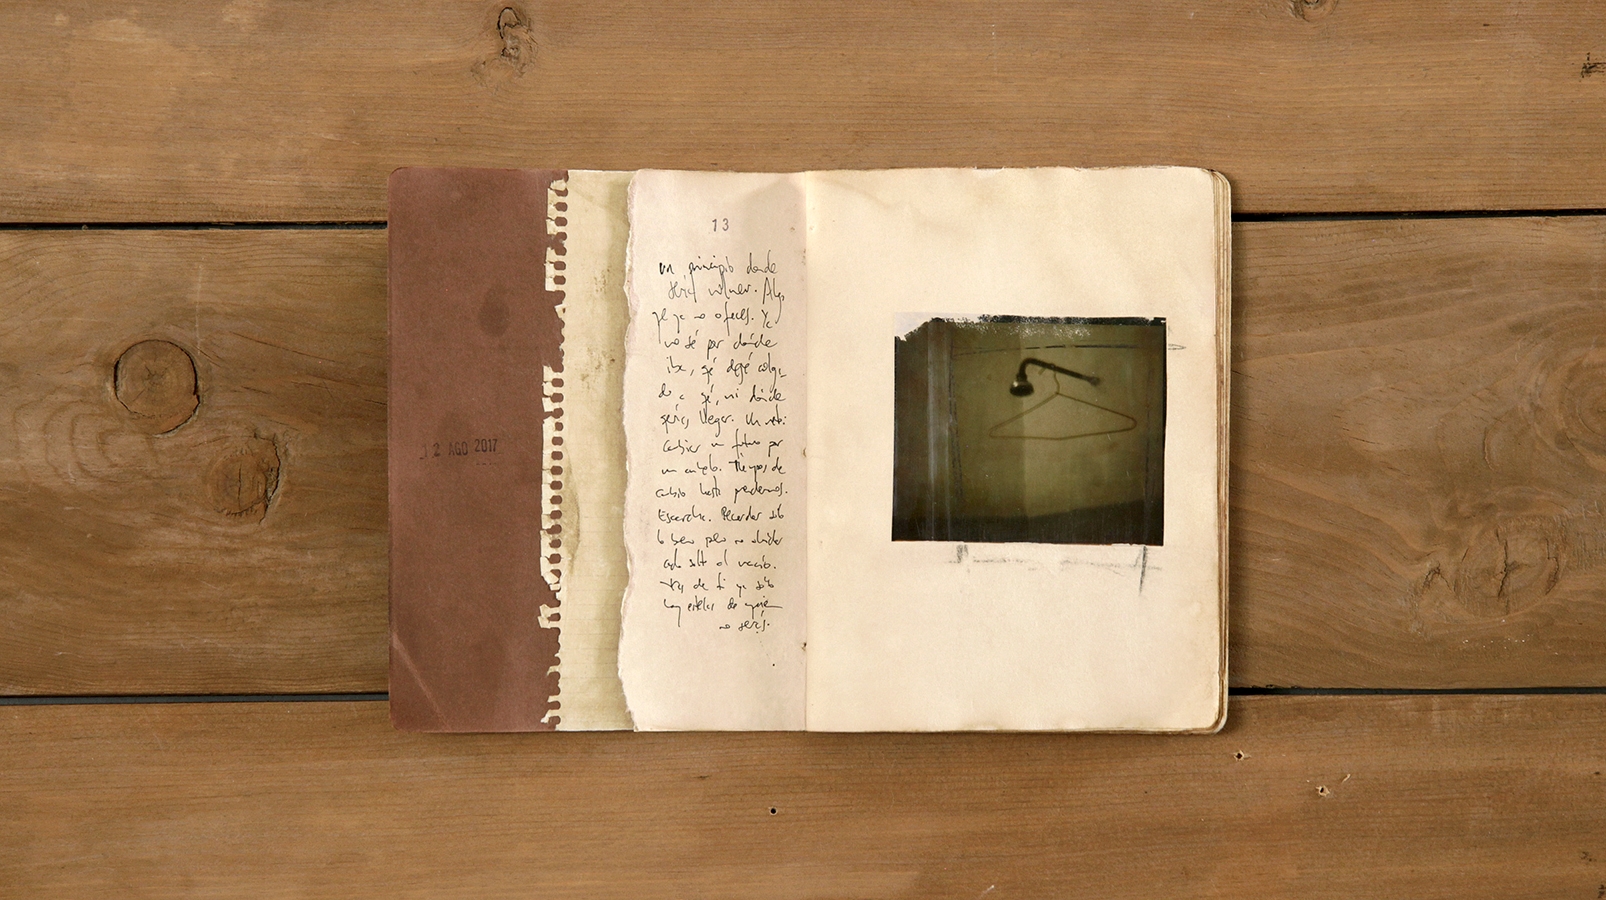 12 AGO 2017
13
un principio donde
sería volver. Algo
que ya no ofreces. Ya
no sé por dónde
iba, sé dejé colga-
do a sí, ni dónde
sería llegar. Un
cambiar un futuro por
un anhelo. Tiempos de
cambio hasta perdernos.
Escarcha. Recordar sólo
lo bueno pero no olvidar
cada salto al vacío.
Tras de ti ya sólo
hay estelas de quien
no serás.